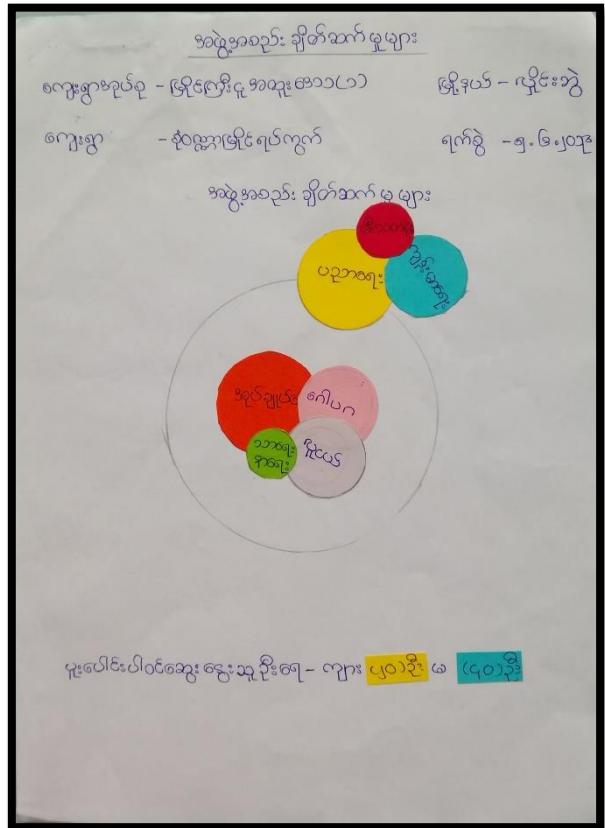 အဖွဲ့အစည်း ချိတ်ဆက် မှုများ
ကျေးရွာအုပ်စု - မြိုင်ကြီးငူ အထူးဒေသ(၁) မြို့နယ် - လှိုင်းဘွဲ
ကျေးရွာ - စုံဝဏ္ဏမြိုင်ရပ်ကွက် ရက်စွဲ - ၅.၆.၂၀၁၃
အဖွဲ့အစည်း ချိတ်ဆက် မှုများ
ပညာရေး
ကျန်းမာရေး
အုပ်ချုပ်ရေး
ဂေါပက
သာရေး
နာရေး
ပူးပေါင်းပါဝင်ဆွေးနွေးသူဦးရေ - ကျား (၂၀)ဦး မ (၄၀)ဦး